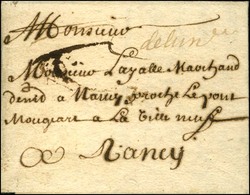 A Monsieur
delun
A Monsieur Lasalle Marchand
demt a Nancy proche Le pont
Mougeart a La Ville neuf
A Nancy